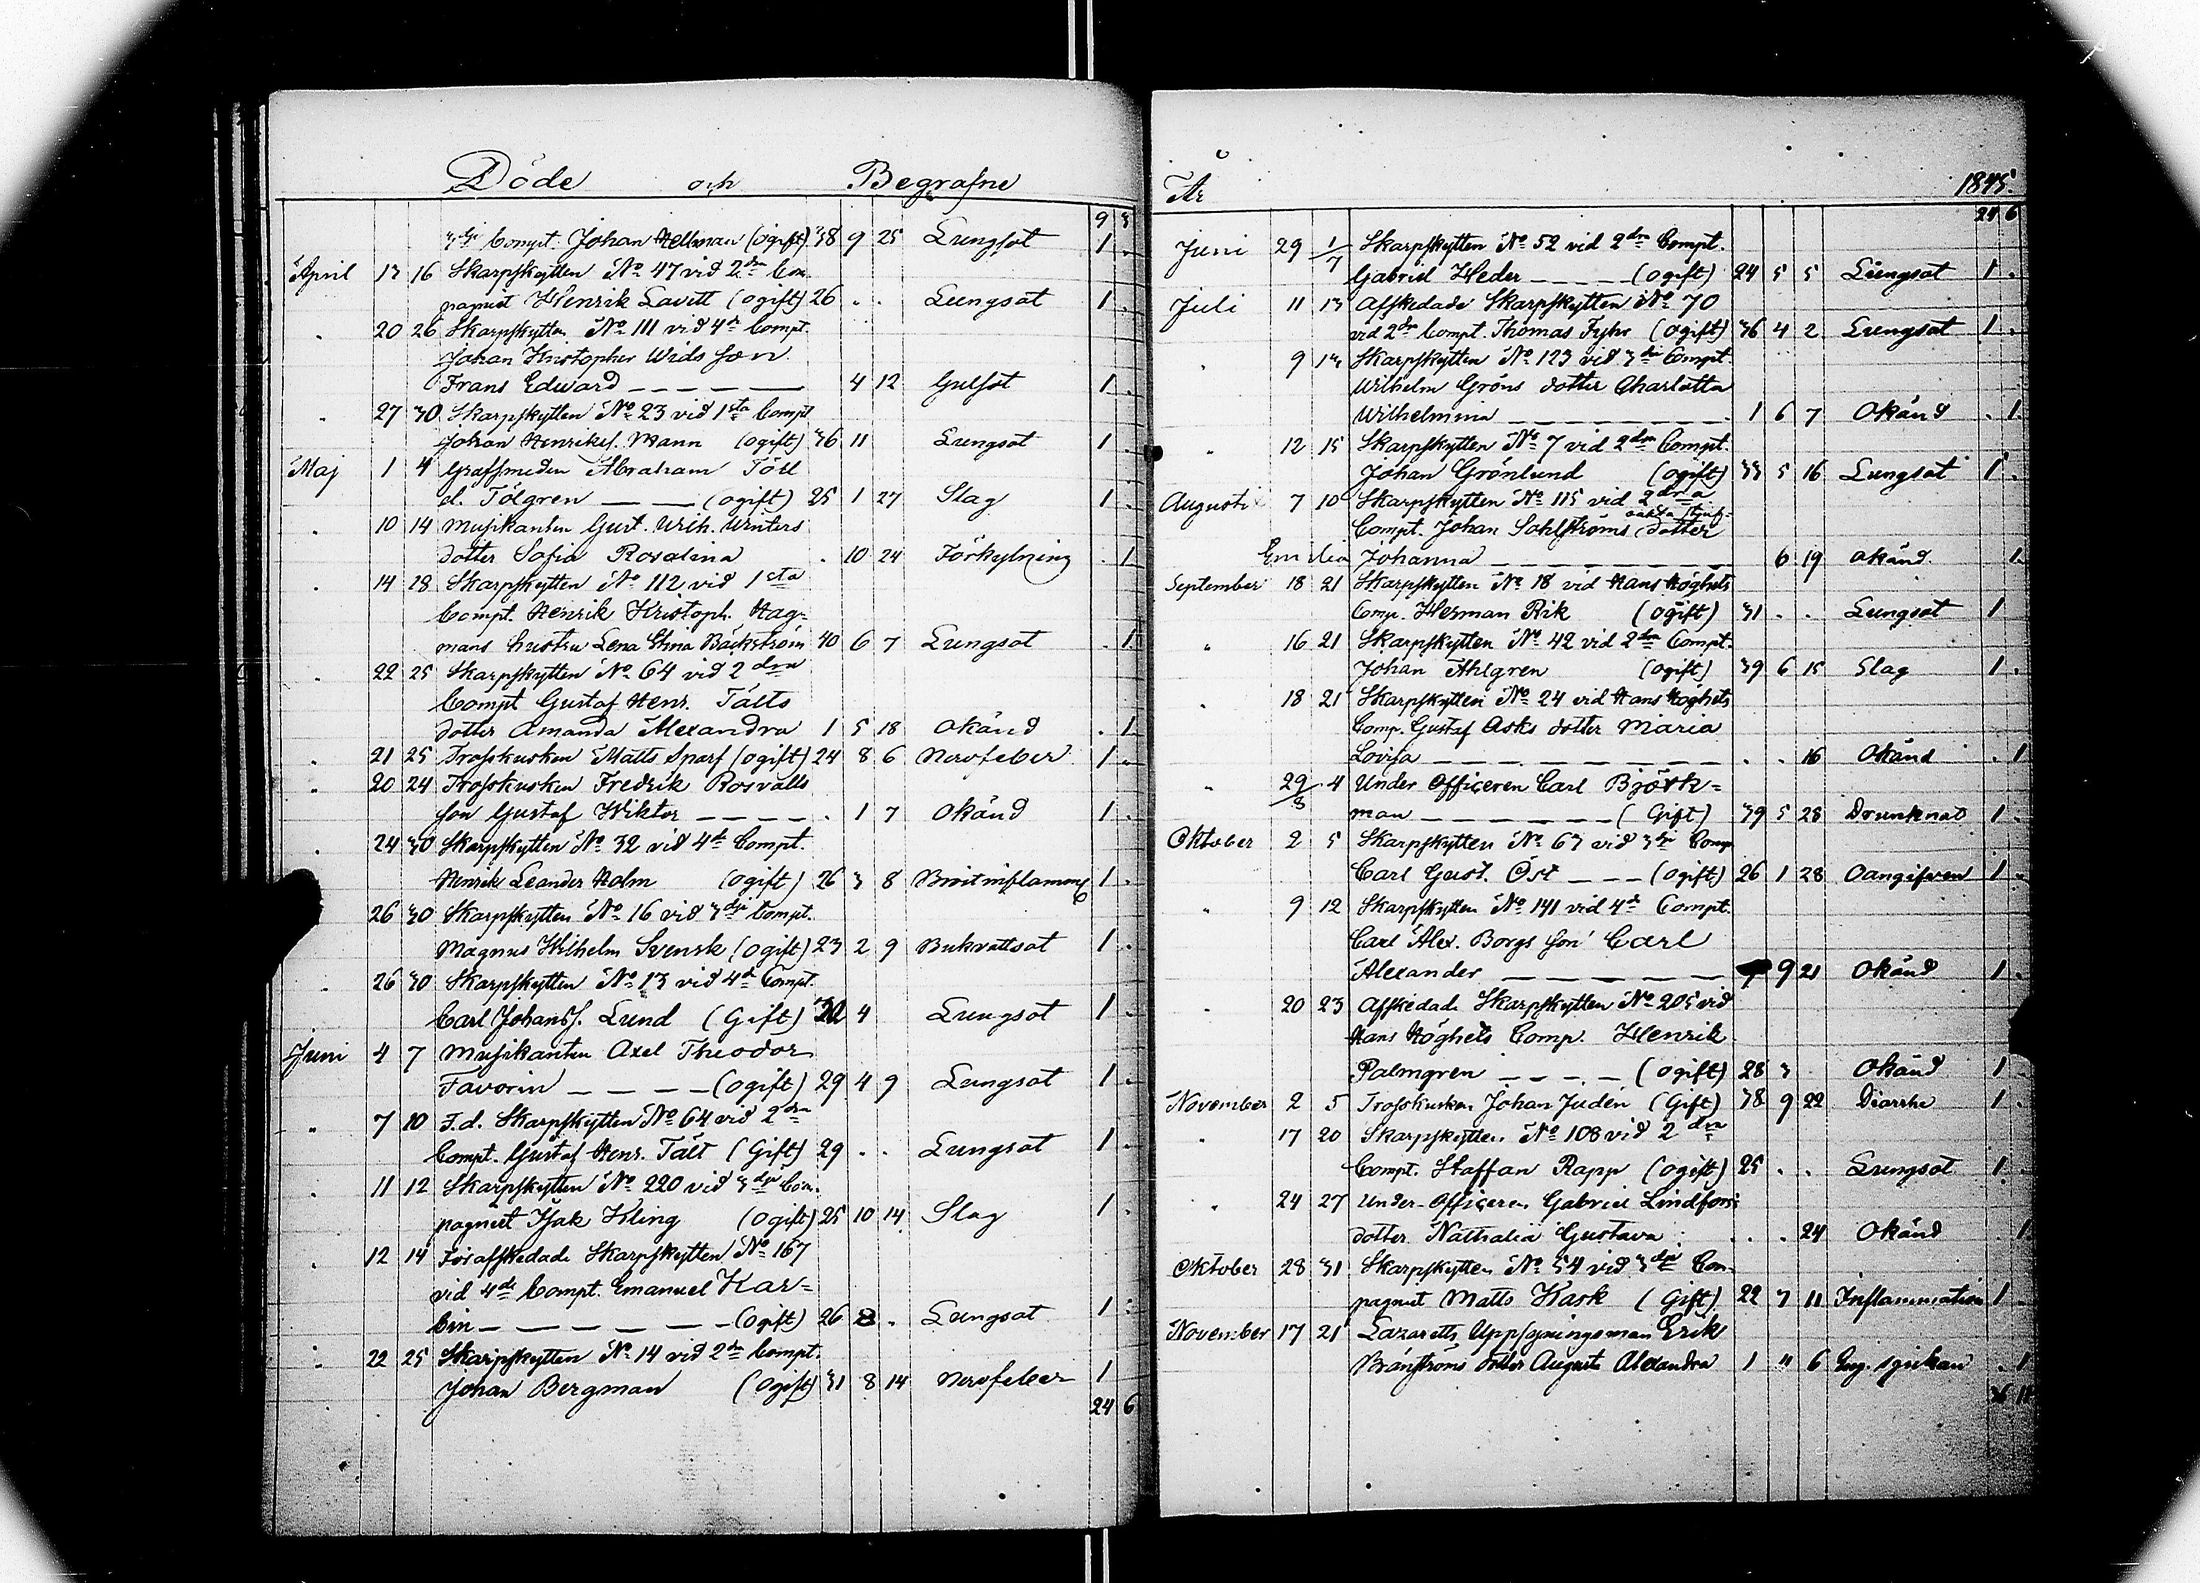 Döde och Begrafne
9 3
3dje Compt. Johan Hellman (ogift) 38 9 25 Lungsot 1 .
April 13 16 Skarpskytten No 47 vid 2dra Com
pagniet Henrik Lavitt (ogift) 26 . . Lungsot 1 .
. 20 26 Skarpskytten No 111 vid 4de Compt.
Johan Kristopher Wids son
Frans Edward — — — — — 4 12 Gulsot 1 .
. 27 30 Skarpskytten No 23 vid 1sta Compt
Johan Henriks. Mann (ogift) 36 11 Lungsot 1 .
Maj 1 4 Grofsmeden Abraham Töll
el. Tölgren — — — (ogift) 25 1 27 Slag 1 .
. 10 14 Musikanten Gust. Wilh. Winters
dotter Sofia Rosalina . 10 24 Förkylning . 1
. 14 28 Skarpskytten No 112 vid 1sta
Compt. Henrik Kristoph. Hag-
mans hustru Lena Stina Bäckström 40 6 7 Lungsot . 1
. 22 25 Skarpskytten No 64 vid 2dra
Compt Gustaf Henr. Tälts
dotter Amanda Alexandra 1 5 18 Okänd . 1
. 21 25 Trosskusken Matts Sparf (ogift) 24 8 6 Nervfeber 1 .
. 20 24 Trosskusken Fredrik Rosvalls
son Gustaf Wiktor — — — — . 1 7 Okänd 1 .
. 24 30 Skarpskytten No 32 vid 4de Compt.
Henrik Leander Holm (ogift) 26 3 8 1 .
26 30 Skarpskytten No 16 vid 3dje Compt.
Magnus Wilhelm Svensk (ogift) 23 2 9 Bukvattsot 1 .
. 26 30 Skarpskytten No 13 vid 4de Compt.
Carl Johanss. Lund (Gift) 32 4 Lungsot 1 .
Juni 4 7 Musikanten Axel Theodor
Favorin — — — — (ogift) 29 4 9 Lungsot 1 .
. 7 10 F.d. Skarpskytten No 64 vid 2dra
Compt. Gustaf Henr. Tält (Gift) 29 . . Lungsot 1 .
. 11 12 Skarpskytten No 220 vid 3dje Com.
pagniet Isak Kling (ogift) 25 10 14 Slag 1 .
. 12 14 Föraffskedade Skarpskytten No 167
vid 4de Compt. Emanuel Kar-
bin — — — — — — (ogift) 26 8 . Lungsot 1 .
. 22 25 Skarpskytten No 14 vid 2dra Compt.
Johan Bergman (Ogift) 31 8 14 Nervfeber 1
24 6
År 1845.
24 6
Juni 29 1/7 Skarpskytten No 52 vid 2dra Compt.
Gabriel Heder — — — — (ogift) 24 5 5 Lungsot 1 .
Juli 11 13 Affskedade Skarpskytten No 70
vid 2dra Compt. Thomas (ogift) 36 4 2 Lungsot 1 .
. 9 13 Skarpskytten No 123 vid 3dje Compt
Wilhelm Gröns dotter Charlotta
Wilhelmina — — — — — — . 1 6 7 Okänd . 1
. 12 15 Skarpskytten No 7 vid 2dra Compt.
Johan Grönlund (ogift) 33 5 16 Lungsot 1
Augusti 7 10 Skarpskytten No 115 vid 2dra
oäkta
Compt. Johan Sohlströms dotter
Emilia Johanna — — — — — — 6 19 okänd . 1
September 18 21 Skarpskytten No 18 vid Hans Höghets
Comp. Herman Rik (ogift) 31 . . Lungsot 1
. 16 21 Skarpskytten No 42 vid 2dra Compt.
Johan Ahlgren (ogift) 39 6 15 Slag 1 .
. 18 21 Skarpskytten No 24 vid Hans Höghets
Comp. Gustaf Asks dotter Maria
Lovisa — — — — — — — . . 16 Okänd . 1
. 29/8 4 Under Officeren Carl Björk-
man — — — — — — (Gift) 39 5 28 Drunknat 1 .
Oktober 2 5 Skarpskytten No 63 vid 3dje Comp
Carl Gust. Öst — — — (ogift) 26 1 28 Oangifven 1 .
. 9 12 Skarpskytten No 141 vid 4de Compt.
Carl Alex. Borgs son Carl
Alexander — — — — — — — 9 21 Okänd 1 .
. 20 23 Affskedade Skarpskytten No 205 vid
Hans Höghets Comp. Henrik
Palmgren — — — — (ogift) 28 3 . Okänd 1 .
November 2 5 Trosskusken Johan Juden (Gift) 38 9 22 Diarrhe 1 .
. 17 20 Skarpskytten No 108 vid 2dra
Compt. Staffan Rapp (ogift) 25 . . Lungsot 1 .
. 24 27 Under-Officeren Gabriel Lindfors
dotter Nathalia Gustava . . 24 Okänd 1
Oktober 28 31 Skarpskytten No 54 vid 3dje Com-
pagniet Matts Kask (Gift) 22 7 11 Inflammation 1 .
November 17 21 Lazaretts Uppsyningsman Erik
Bränströms dotter Augusta Alexandra 1 " 6 Eng. sjukan . 1
36 11